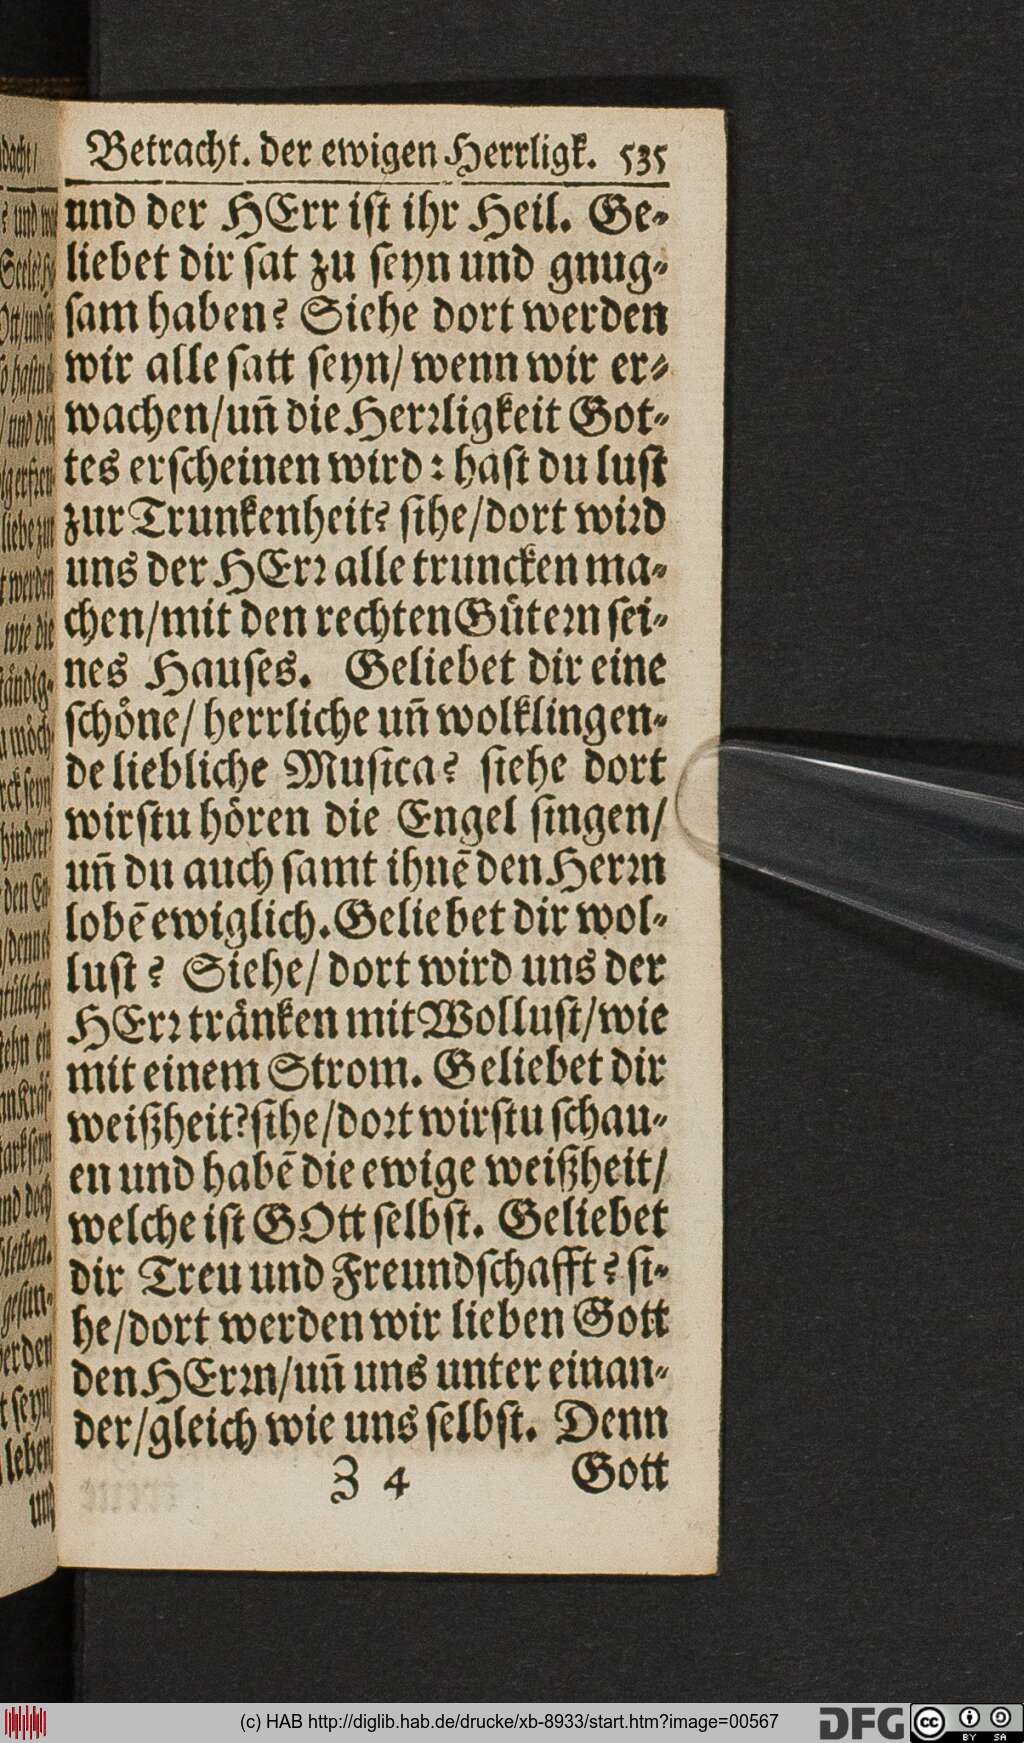 Betracht. der ewigen Herrligk. 535
und der HErr iſt ihr Heil. Ge⸗
liebet dir ſat zu ſeyn und gnug⸗
ſam haben? Siehe dort werden
wir alle ſatt ſeyn/ wenn wir er⸗
wachen/uñ die Herꝛligkeit Got⸗
tes erſcheinen wird: haſt du luſt
zur Trunkenheit? ſihe/dort wiꝛd
uns der HErꝛ alle truncken ma⸗
chen/mit den rechten Guͤteꝛn ſei⸗
nes Hauſes. Geliebet dir eine
ſchoͤne/ herrliche uñ wolklingen⸗
de liebliche Muſica? ſiehe dort
wirſtu hoͤren die Engel ſingen/
uñ du auch ſamt ihnē den Herꝛn
lobē ewiglich. Geliebet dir wol⸗
luſt? Siehe/ dort wird uns der
HErꝛ traͤnken mit Wolluſt/wie
mit einem Strom. Geliebet dir
weißheit? ſihe/doꝛt wirſtu ſchau⸗
en und habē die ewige weißheit/
welche iſt GOtt ſelbſt. Geliebet
dir Treu und Freundſchafft? ſi⸗
he/dort werden wir lieben Gott
den HErꝛn/uñ uns unter einan⸗
der/gleich wie uns ſelbſt. Denn
Z 4 Gott
(c) HAB http://diglib.hab.de/drucke/xb-8933/start.htm?image=00567
DFG cc BY SA